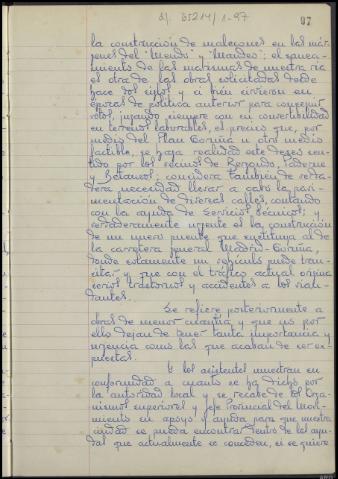 a). B5214/1-97
97
la construcción de malecones en las már-
genes del "Mendo" y "Mandeo"; el sanea-
miento de las marismas de nuestra ría
es otra de las obras solicitadas desde
hace dos siglos y si bien sirvieron en
épocas de política anterior para conseguir
votos, jugando siempre con su convertibilidad
en terrenos laborables, es preciso que, por
medio del Plan Coruña u otro medio
factible, se haga realidad este deseo sen-
tido por los vecinos de Bergondo,
y Betanzos; considera también de verda-
dera necesidad llevar a cabo la pavi-
mentación de diversas calles, contando
con la ayuda de Servicios Técnicos; y
verdaderamente urgente es la construcción
de un nuevo puente que sustituya al de
la carretera general Madrid-Coruña,
donde solamente un vehículo puede transi-
tar y que con el tráfico actual origina
serios trastornos y accidentes a los vian-
dantes.
Se refiere posteriormente a
obras de menor cuantía y que no por
ello dejan de tener tanta importancia y
urgencia como las que acaban de ser ex-
puestas.
Y los asistentes muestran su
conformidad a cuanto se ha dicho por
la autoridad local y se recabe de los Orga-
nismos superiores y Jefe Provincial del Movi-
miento su apoyo y ayuda para que nuestra
ciudad se pueda encontrar dentro de las ayu-
das que actualmente se conceden, si se quiere